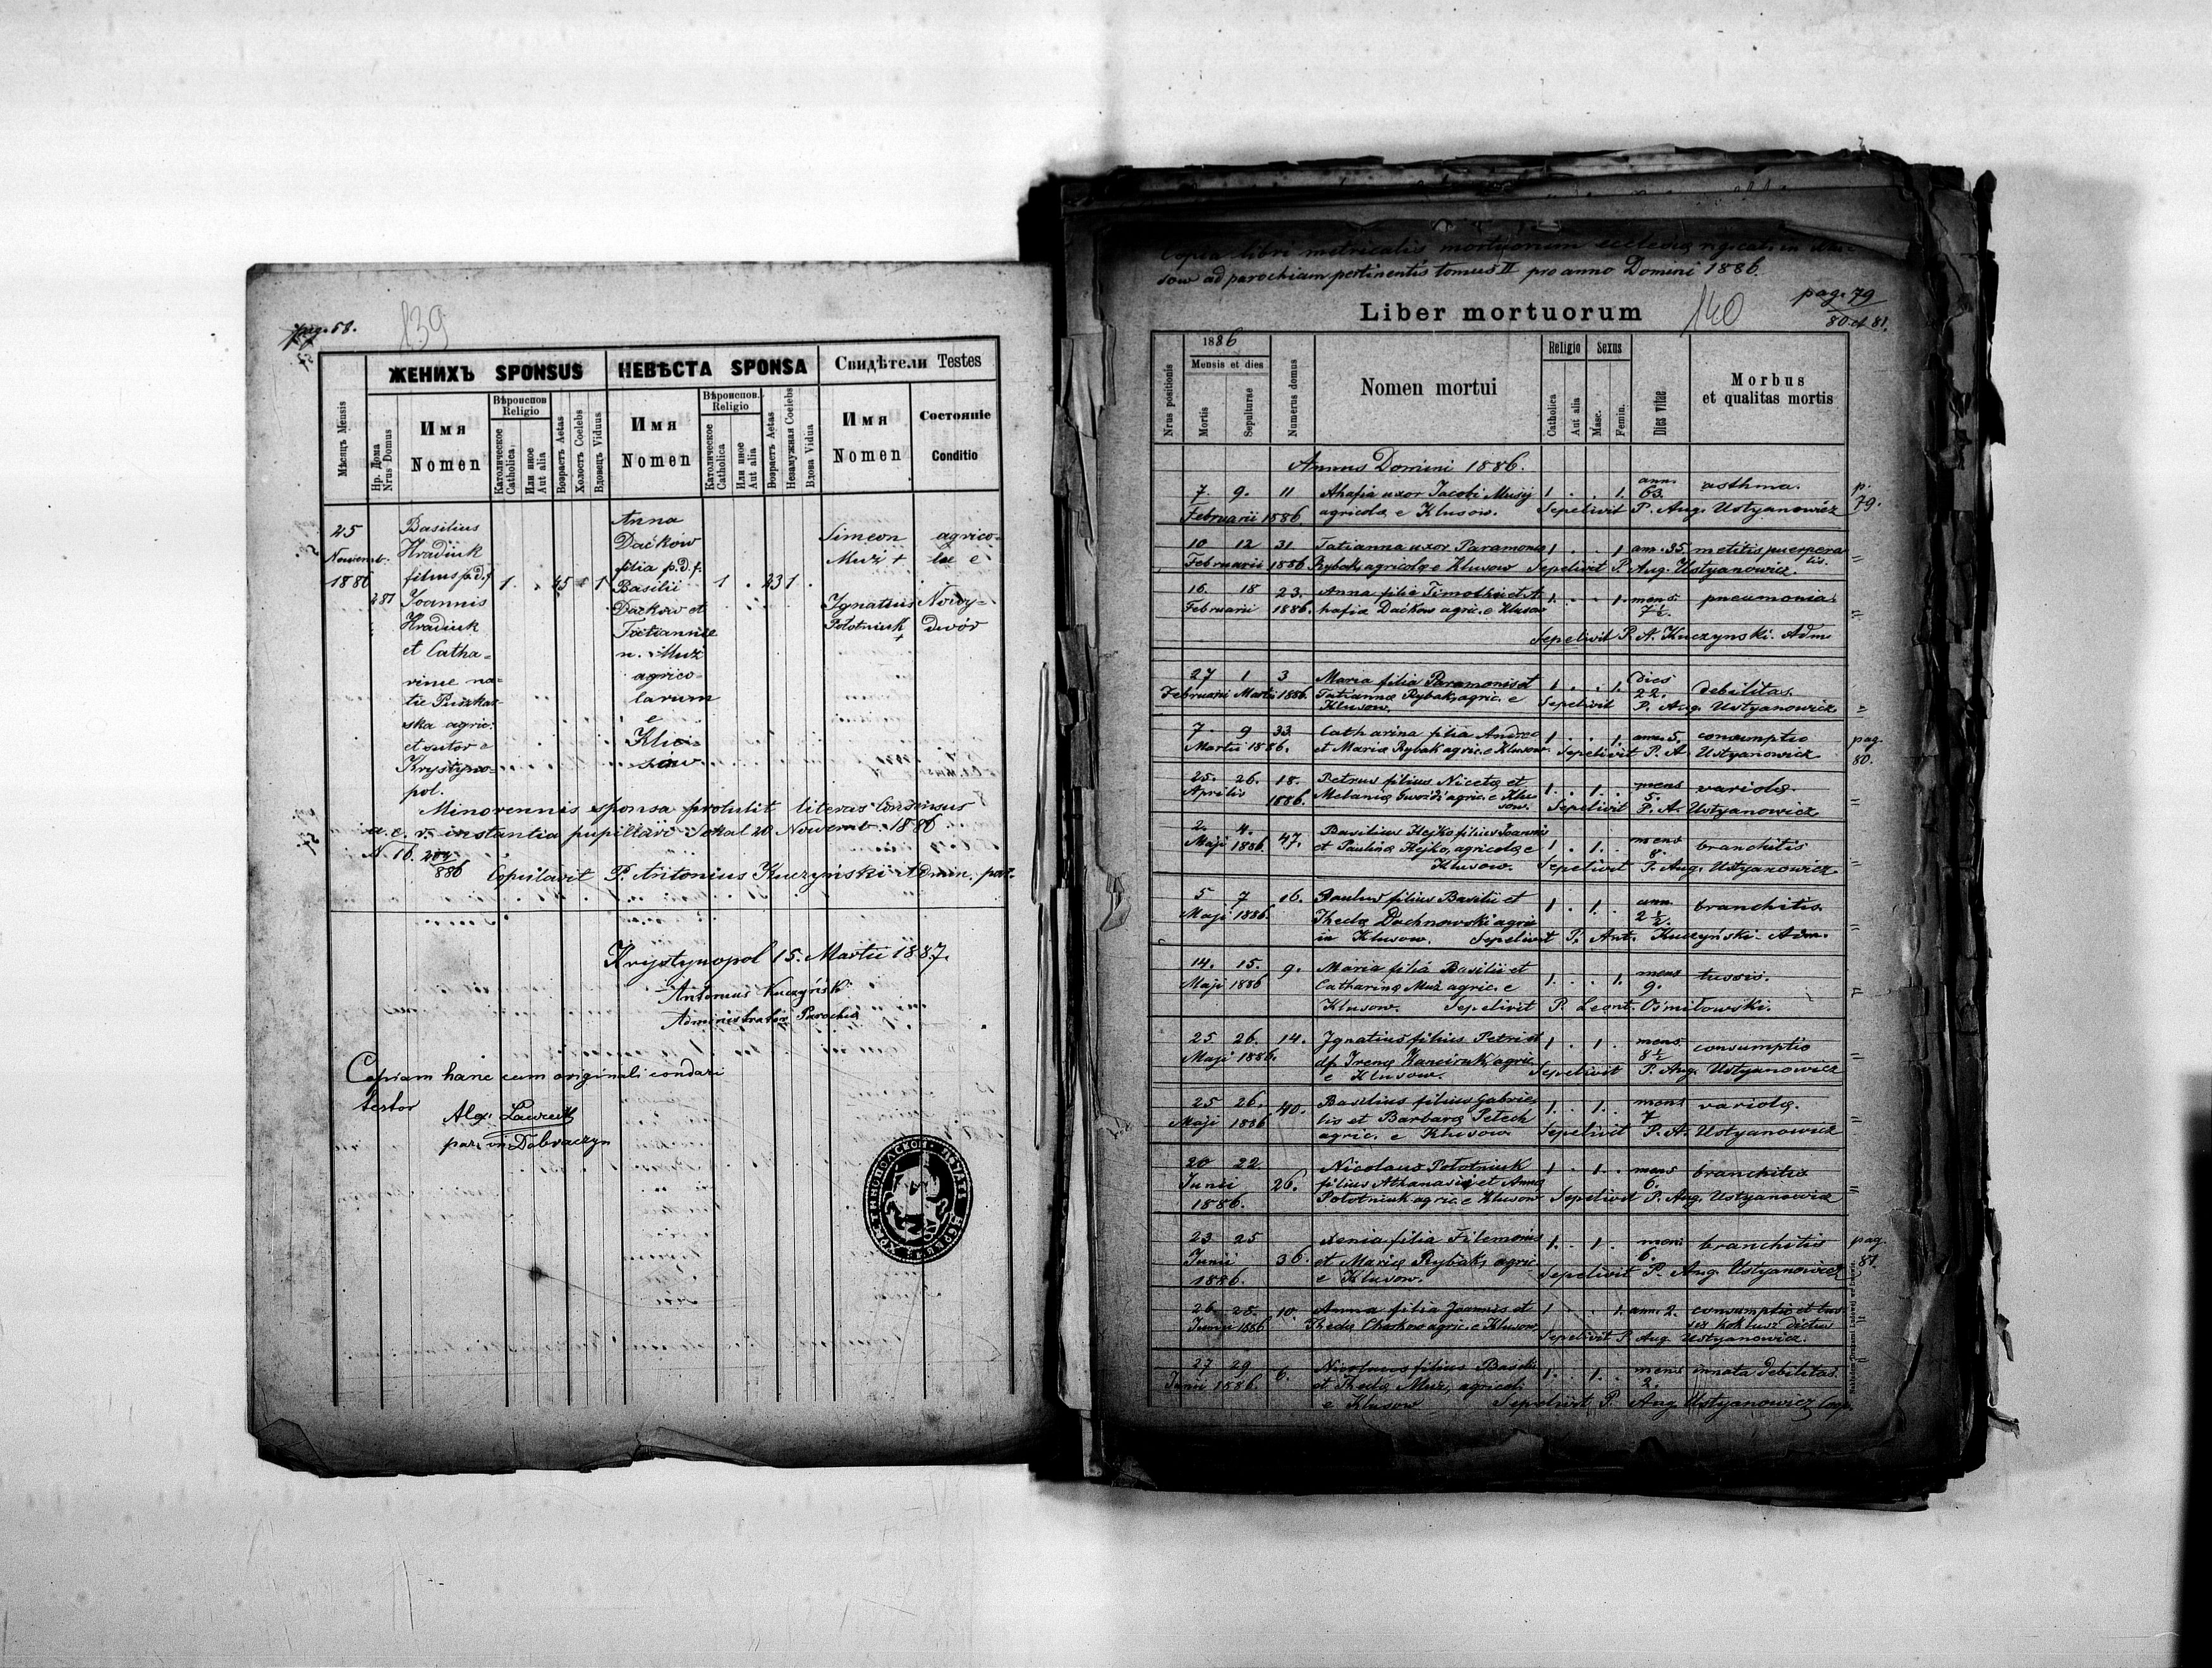 pag. 58.
139
ЖЕНИХЪ SPONSUS
НЕВѢСТА SPONSA
Свидѣтели Testes
Мѣсяцъ Mensis
Нр. Дома Nrus Domus
Имя
Nomen
Вѣроиспов. Religio
Католическое Catholica
Или иное Aut alia
Возрастъ Aetas
Холостъ Coelebs
Вдовецъ Viduus
Имя
Nomen
Вѣроиспов. Religio
Католическое Catholica
Или иное Aut alia
Возрастъ Aetas
Незамужная Coelebs
Вдова Vidua
Имя
Nomen
Состояніе
Conditio
25
Novemb.
1886
281
Basilius
Hradiuk
filius p.d.f.
Joannis
Hradiuk
et Catha-
rinae na-
tae Puszkar-
ska agric.
et sutor e
Krystyno-
pol.
1 . 45 1
Anna
Daćkow
filia p.d.f.
Basilii
Daćkow et
Tatiannae
n. Muż
agrico-
larum
e
Klu-
sow
1 . 23 1 .
Simeon
Muż +
Ignatius
Połotniuk
+
agrico-
lae e
Nowy-
dwór
Minorennis sponsa protulit literas consensus
a. c. r. instantia pupillari Sokal 20 Novemb. 1886
N. 16. 204/886 Copulavit P. Antonius Kuczyński Admin. par.
Krystynopol 15. Martii 1887.
Antonius Kuczyński
Administrator Parochiae
Copiam hanc cum originali
testor
par. in Dobraczyn
Copia libri metricalis mortuorum ecclesiae
sow ad parochiam pertinentis tomus II pro anno Domini 1886.
pag. 79
80 et 81.
Liber mortuorum
140
Nrus positionis
1886
Mensis et dies
Mortis
Sepulturae
Numerus domus
Nomen mortui
Religio
Catholica
Aut alia
Sexus
Masc.
Femin.
Dies vitae
Morbus
et qualitas mortis
Annus Domini 1886.
7. 9. 11 Ahafia uxor Jacobi Musij 1 . . 1. ann. 63. asthma. p. 79.
Februarii 1886 agricolae e Klusow. Sepelivit P. Aug. Ustyanowicz
10 12 31 Tatianna uxor Paramonis 1 . . 1 ann. 35. metitis puerpera
lis.
Februarii 1886 Rybak agricolae e Klusow Sepelivit P. Aug. Ustyanowicz.
16. 18 23. Anna filia Timothei et A 1. . . 1. mens 7½. pneumonia.
Februarii 1886. hafia Daćkow agric. e Klusow
Sepelivit P. A. Kuczynski. Adm.
27 1 3 Maria filia Paramonis et 1 . . 1. dies 22. debilitas.
Februarii Martii 1886. Tatiannae Rybak agric. e Sepelivit P. Aug. Ustyanowicz
Klusow.
7. 9 33. Catharina filia Andreae 1 . . 1. ann. 5. consumptio pag. 80.
Martii 1886. et Mariae Rybak agric. e Klusow. Sepelivit P. A Ustyanowicz
25. 26. 18. Petrus filius Nicetae et 1. . 1. . mens 5. variola.
Aprilis 1886. Melaniae Gwoźdź agric. e Klu
sow. Sepelivit P. A. Ustyanowicz
2. 4. 47. Basilius Hejko filius Joannis 1 . 1. . mens 8. branchitis
Maji 1886. et Paulinae Hejko, agricolae e
Klusow. Sepelivit P. Aug. Ustyanowicz
5 7 16. Paulus filius Basilii et 1 . 1. . ann. 2½. branchitis.
Maji 1886. Theclae Duchnowski agric
in Klusow. Sepelivit P. Ant. Kuczyński Adm.
14. 15. 9. Maria filia Basilii et 1. . . 1. mens 9. tussis.
Maji 1886 Catharinae Muż agric. e
Klusow. Sepelivit P. Leont. Ośmiłowski.
25 26. 14. Ignatius filius Petri et 1 . 1 . mens 8½ consumptio
Maji 1886. Irenae agric.
e Klusow. Sepelivit P. Aug. Ustyanowicz
25 26. 40. Basilius filius Gabrie- 1. . 1. . mens 7 variola.
Maji 1886 lis et Barbarae Petech
agric. e Klusow Sepelivit P. A. Ustyanowicz
20 22 26. Nicolaus Połotniuk 1 . 1 . mens 6. branchitis
Junii filius Athanasii et Annae
1886. Połotniuk agric. e Klusow Sepelivit P. Aug. Ustyanowicz
23 25 36. Xenia filia Filemonis 1. . 1 . mens 6. branchitis pag. 81.
Junii et Mariae Rybak, agric.
1886. e Klusow. Sepelivit P. Aug. Ustyanowicz
26 28. 10. Anna filia Joannis et 1 . . 1. ann. 2. consumptio et tus
Junii 1886 Theclae agric. e Klusow, sis koklusz dictus
Sepelivit P. Aug. Ustyanowicz.
27 29 6. Nicolaus filius Basilii 1. . 1. . mens 2. innata debilitas.
Junii 1886. et Theclae Muż, agricol.
e Klusow Sepelivit P. Aug Ustyanowicz Cap.